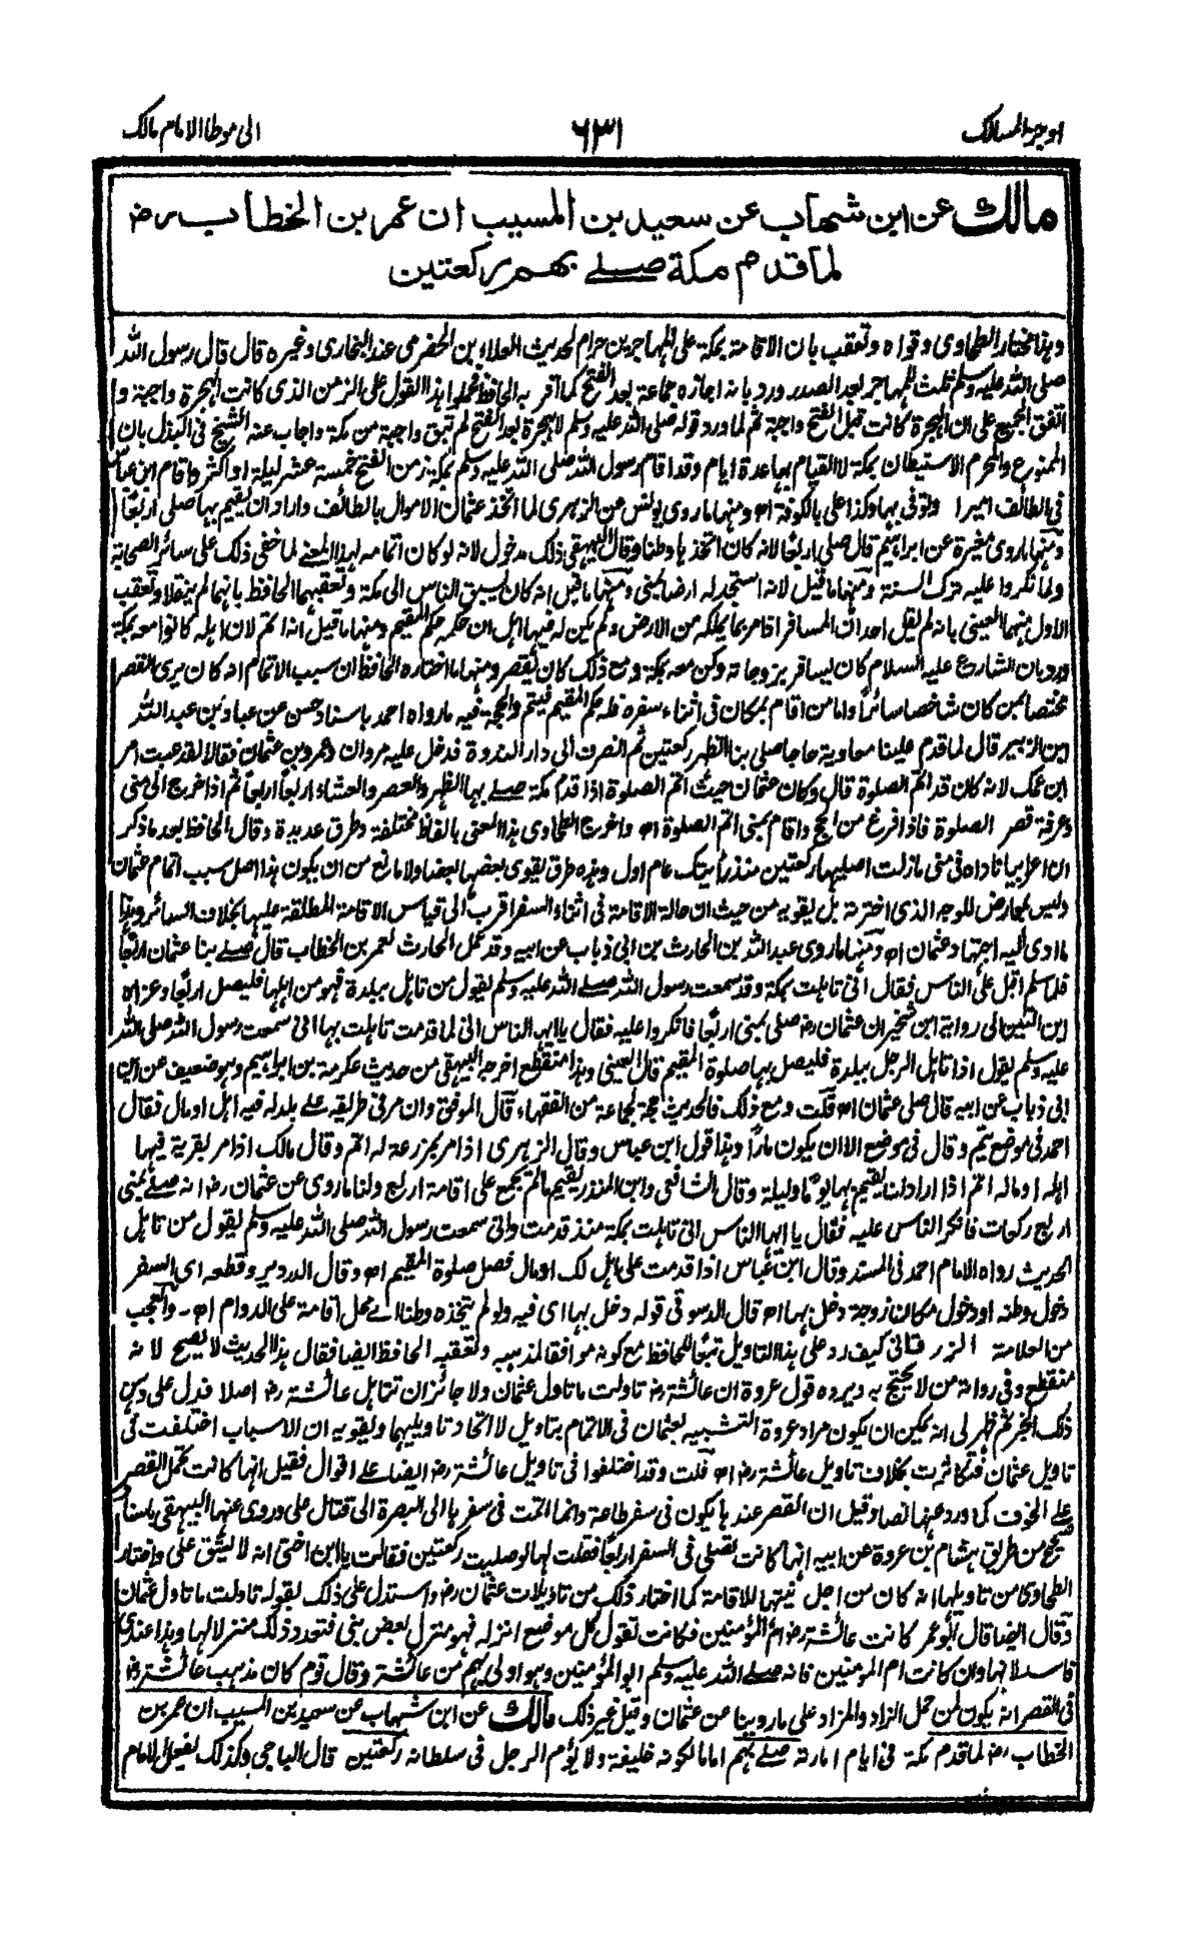 اوجز المسالك ٦٣١ الى موطا الامام مالك
مالك عن ابن شهاب عن سعيد بن المسيب ان عمر بن الخطاب رض
لما قدم مكة صلے بهم ركعتين
وهذا مختار الطحاوى وقواه وتعقب بان الاقامة بمكة على المهاجرين حرام لحديث العلاء بن الحضرمى عند البخارى وغيره قال قال رسول الله
صلى الله عليه وسلم ثلث للمهاجر بعد الصدر ورد بانه اجازه جماعة بعد الفتح كما اقر به الحافظ فحملوا هذا القول على الزمن الذى كانت الهجرة واجبة و
اتفق الجميع على ان الهجرة كانت قبل الفتح واجبة ثم لما ورد قوله صلى الله عليه وسلم لا هجرة بعد الفتح لم تبق واجبة من مكة واجاب عنه الشيخ فى البذل بان
الممنوع والمحرم الاستيطان بمكة لا القيام بها عدة ايام وقد اقام رسول الله صلى الله عليه وسلم بمكة زمن الفتح خمسة عشر ليلة او اكثر واقام ابن عباس
فى الطائف اميرا وتوفى بها وكذا على بالكوفة اه ومنها ما روى يونس عن الزهرى لما اتخذ عثمان الاموال بالطائف واراد ان يقيم بها صلى اربعًا
ومنها ما روى مغيرة عن ابراهيم قال صلى اربعًا لانه كان اتخذها وطنا وقال البيهقى ذلك مدخول لانه لو كان اتمامه لهذا المعنے لما خفى ذلك على سائر الصحابة
ولما انكروا عليه ترك السنة ومنها ما قيل لانه استجد له ارضا بمنى ومنها ما قيل انه كان يسبق الناس الى مكة وتعقبهما الحافظ بانهما لم ينقلا وتعقب
الاول منهما العينى بانه لم يقل احد ان المسافر اذا مر بما يملكه من الارض ولم يكن له فيها اهل ان حكمه حكم المقيم ومنها ما قيل انه اتم لان اهله كانوا معه بمكة
ورد بان الشارع عليه السلام كان يسافر بزوجاته وكن معه بمكة ومع ذلك كان يقصر ومنها ما اختاره الحافظ ان سبب الاتمام انه كان يرى القصر
مختصا بمن كان شاخصا سائرًا واما من اقام بمكان فى اثناء سفره فله حكم المقيم فيتم والحجة فيه ما رواه احمد باسناد حسن عن عباد بن عبد الله
ابن الزبير قال لما قدم علينا معاوية حاجا صلى بنا الظهر ركعتين ثم انصرف الى دار الندوة فدخل عليه مروان وعمرو بن عثمان فقالا لقد عبت امر
ابن عمك لانه كان قد اتم الصلوة قال وكان عثمان حيث اتم الصلوة اذا قدم مكة صلے بها الظهر والعصر والعشاء اربعًا اربعًا ثم اذا خرج الى منى
وعرفة قصر الصلوة فاذا فرغ من الحج واقام بمنى اتم الصلوة اه واخرج الطحاوى هذا المعنى بالفاظ مختلفة وطرق عديدة وقال الحافظ بعد ما ذكر
ان اعرابيا ناداه فى منى مازلت اصليها ركعتين منذ رأيتك عام اول وهذه طرق يقوى بعضها بعضا ولا مانع من ان يكون هذا اصل سبب اتمام عثمان
وليس بمعارض للوجه الذى اخترته بل يقويه من حيث ان حالة الاقامة فى اثناء السفر اقرب الى قياس الاقامة المطلقة عليها بخلاف السائر وهذا
ما ادى اليه اجتهاد عثمان اه ومنها ما روى عبد الله بن الحارث بن ابى ذباب عن ابيه وقد عمل الحارث لعمر بن الخطاب قال صلے بنا عثمان اربعًا
فلما سلم اقبل على الناس فقال انى تاهلت بمكة وقد سمعت رسول الله صلے الله عليه وسلم يقول من تاهل ببلدة فهو من اهلها فليصل اربعًا وعزاه
ابن التين الى رواية ابن شخير ان عثمان رض صلى بمنى اربعًا فانكروا عليه فقال يا ايها الناس انى لما قدمت تاهلت بها انى سمعت رسول الله صلى الله
عليه وسلم يقول اذا تاهل الرجل ببلدة فليصل بها صلوة المقيم قال العينى وهذا منقطع اخرجه البيهقى من حديث عكرمة بن ابراهيم وهو ضعيف عن ابن
ابى ذباب عن ابيه قال صلى عثمان اه قلت ومع ذلك فالحديث حجة لجماعة من الفقهاء قال الموفق وان مر فى طريقه على بلد له فيه اهل او مال فقال
احمد فى موضع يتم وقال فى موضع الا ان يكون مارًا وهذا قول ابن عباس وقال الزهرى اذا مر بمزرعة له اتم وقال مالك اذا مر بقرية فيها
اهله او ماله اتم اذا اراد ان يقيم بها يومًا وليلة وقال الشافعى وابن المنذر يقيم ما لم يجمع على اقامة اربع ولنا ما روى عن عثمان رض انه صلے بمنى
اربع ركعات فانكر الناس عليه فقال يا ايها الناس انى تاهلت بمكة منذ قدمت وانى سمعت رسول الله صلى الله عليه وسلم يقول من تاهل
الحديث رواه الامام احمد فى المسند وقال ابن عباس اذا قدمت على اهل لك او مال فصل صلوة المقيم اه وقال الدردير وقطعه اى السفر
دخول وطنه او دخول مكان زوجة دخل بها اه قال الدسوقى قوله دخل بها اى فيه ولو لم يتخذه وطنا اے محل اقامة على الدوام اه۔ والعجب
من العلامة الزرقانى كيف رد على هذا التاويل تبعًا للحافظ مع كونه موافقا لمذهبه وتعقبه الحافظ ايضا فقال هذا الحديث لا يصح لانه
منقطع وفى رواته من لا يحتج به ويرده قول عروة ان عائشة رض تاولت ما تاول عثمان ولا جائز ان تتاهل عائشة رض اصلا فدل على وهن
ذلك الخبر ثم ظهر لى انه يمكن ان يكون مراد عروة التشبيه بعثمان فى الاتمام بتاويل لا اتحاد تاويليهما ويقويه ان الاسباب اختلفت فى
تاويل عثمان فتكاثرت بخلاف تاويل عائشة رض اه قلت وقد اختلفوا فى تاويل عائشة رض ايضا على اقوال فقيل انها كانت تحمل القصر
على الخوف كما ورد عنها نصا وقيل ان القصر عندها يكون فى سفر طاعة وانما اتمت فى سفرها الى البصرة الى قتال على وروى عنها البيهقى باسناد
صحيح من طريق هشام بن عروة عن ابيه انها كانت تصلى فى السفر اربعًا فقلت لها لو صليت ركعتين فقالت يا ابن اختى انه لا يشق على واختار
الطحاوى من تاويلها انه كان من اجل نيتها للاقامة كما اختار ذلك من تاويلات عثمان رض واستدل على ذلك بقوله تاولت ما تاول عثمان
وقال ايضا قال ابو عمر كانت عائشة رض ام المؤمنين فكانت تقول كل موضع انزله فهو منزل بعض بنى فتعدد ذلك منزلا لها وهذا عندى
فاسد لانها وان كانت ام المومنين فانه صلے الله عليه وسلم ابو المؤمنين وهو اولى بهم من عائشة وقال قوم كان مذهب عائشة رض
فى القصر انه يكون لمن حمل الزاد والمزاد على ما روينا عن عثمان وقيل غير ذلك مالك عن ابن شهاب عن سعيد بن المسيب ان عمر بن
الخطاب رض لما قدم مكة فى ايام امارته صلے بهم اماما لكونه خليفة ولا يؤم الرجل فى سلطانه ركعتين قال الباجى وكذلك يفعل الامام